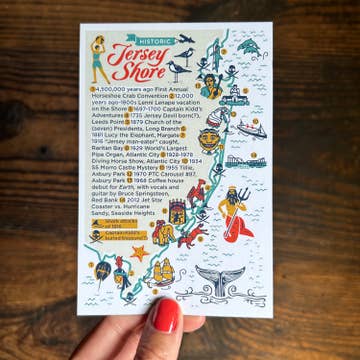 HISTORIC
Jersey
Shore
4,500,000 years ago First Annual
Horseshoe Crab Convention 2 12,000
years ago-1800s Lenni Lenape vacation
on the Shore 3 1697-1700 Captain Kidd's
Adventures 4 1735 Jersey Devil born(?),
Leeds Point 5 1879 Church of the
(seven) Presidents, Long Branch 6
1881 Lucy the Elephant, Margate 7
1916 "Jersey man-eater" caught,
Raritan Bay 8 1929 World's Largest
Pipe Organ, Atlantic City 9 1928-1978
Diving Horse Show, Atlantic City 10 1934
SS Morro Castle Mystery 11 1955 Tillie,
Asbury Park 12 1970 PTC Carousel #87,
Asbury Park 13 1968 Coffee house
debut for Earth, with vocals and
guitar by Bruce Springsteen,
Red Bank 14 2012 Jet Star
Coaster vs. Hurricane
Sandy, Seaside Heights
Shark attacks
of 1916
Captain Kidd's
buried treasure(?)